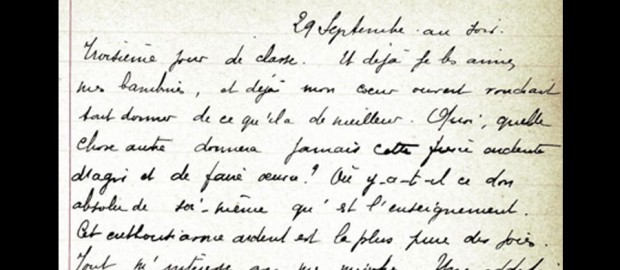 29 Septembre au soir.
Troisième jour de classe. Et déjà je les aime,
mes bambins, et déjà mon cœur ouvert voudrait
tout donner de ce qu'il a de meilleur. Quoi, quelle
chose autre donnera jamais cette fièvre ardente
d'agir et de faire œuvre? Où y-a-t-il ce don
absolu de soi-même qu'est l'enseignement.
Cet enthousiasme ardent est la plus pure des joies.
Tout m'intéresse